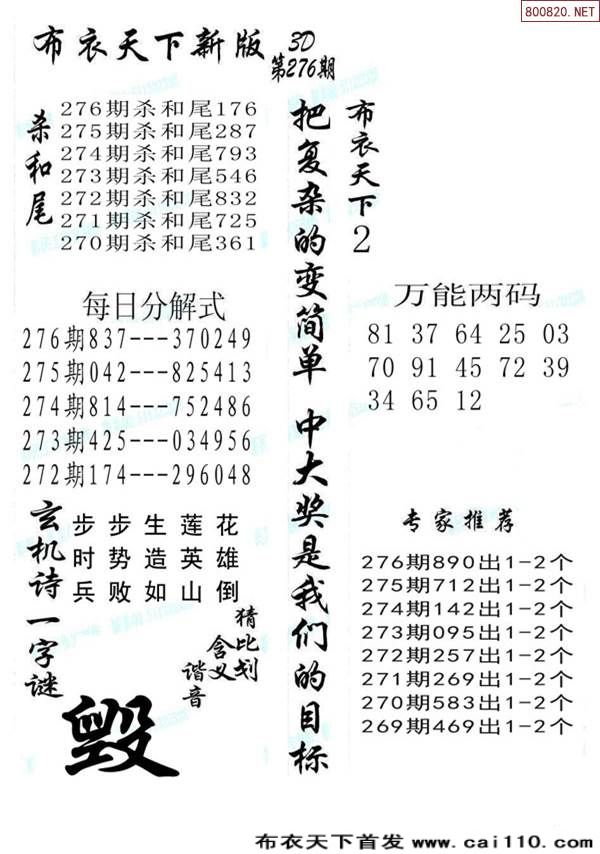 800820.NET
布衣天下新版
3D
第276期
杀和尾
276期杀和尾176
275期杀和尾287
274期杀和尾793
273期杀和尾546
272期杀和尾832
271期杀和尾725
270期杀和尾361
每日分解式
276期837---370249
275期042---825413
274期814---752486
273期425---034956
272期174---296048
玄机诗
步步生莲花
时势造英雄
兵败如山倒
一字谜
猜比划
含义
谐音
毁
把复杂的变简单 中大奖是我们的目标
布衣天下2
万能两码
81 37 64 25 03
70 91 45 72 39
34 65 12
专家推荐
276期890出1-2个
275期712出1-2个
274期142出1-2个
273期095出1-2个
272期257出1-2个
271期269出1-2个
270期583出1-2个
269期469出1-2个
布衣天下首发 www.cai110.com